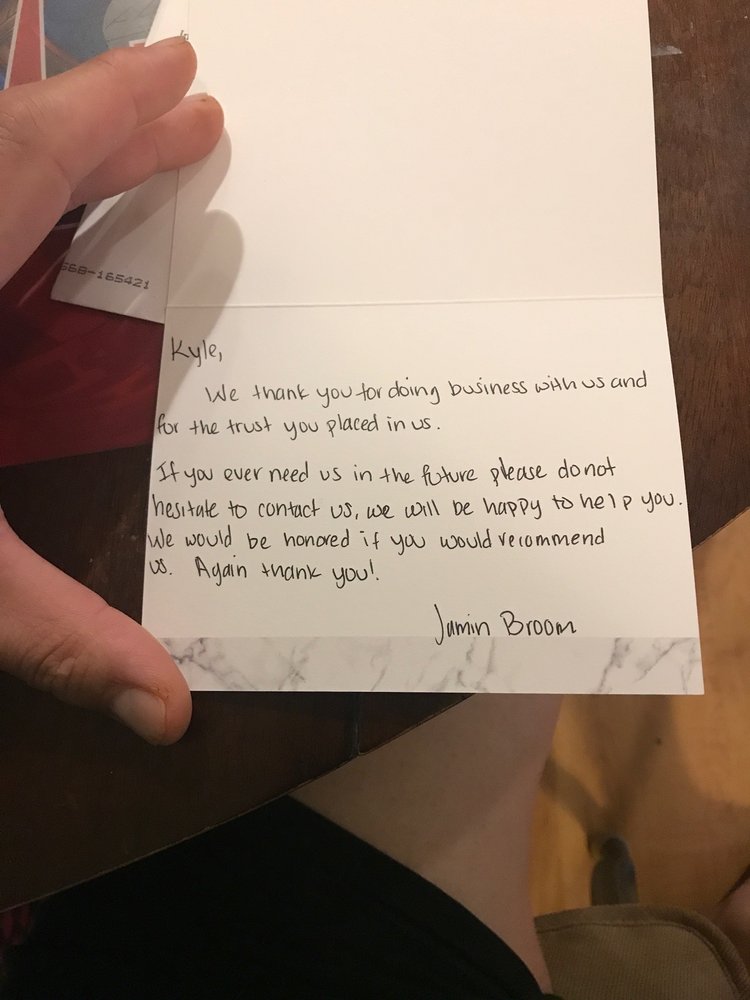 568-165421
Kyle,
We thank you for doing business with us and
for the trust you placed in us.
If you ever need us in the future please do not
hesitate to contact us, we will be happy to help you.
We would be honored if you would recommend
us. Again thank you!
Jamin Broom